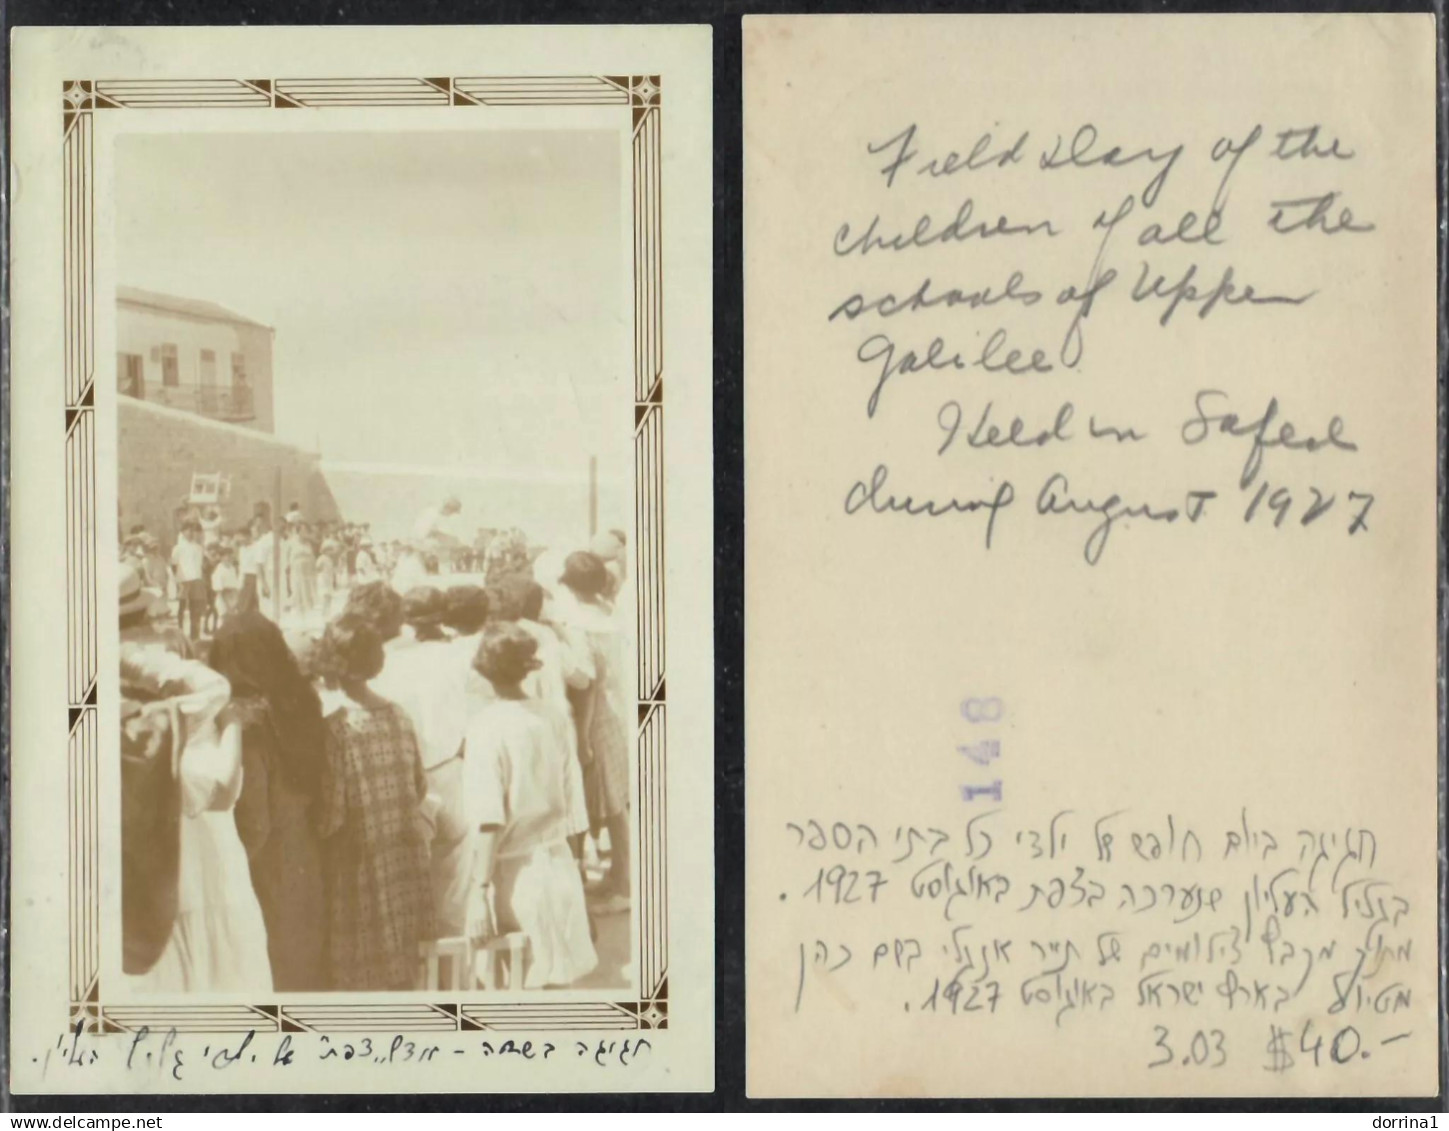 חגיגה בשדה – ליד "צפת" של ילדי גליל העליון.
Field Day of the
children of all the
schools of Upper
Galilee
Held in Safed
during August 1927
148
חגיגה ביום חופש של ילדי כל בתי הספר
בגליל העליון שנערכה בצפת באוגוסט 1927.
מתוך מקבץ צילומים של תייר אנגלי בשם כהן
מטיול בארץ ישראל באוגוסט 1927.
3.03 $40.-
dorrina1